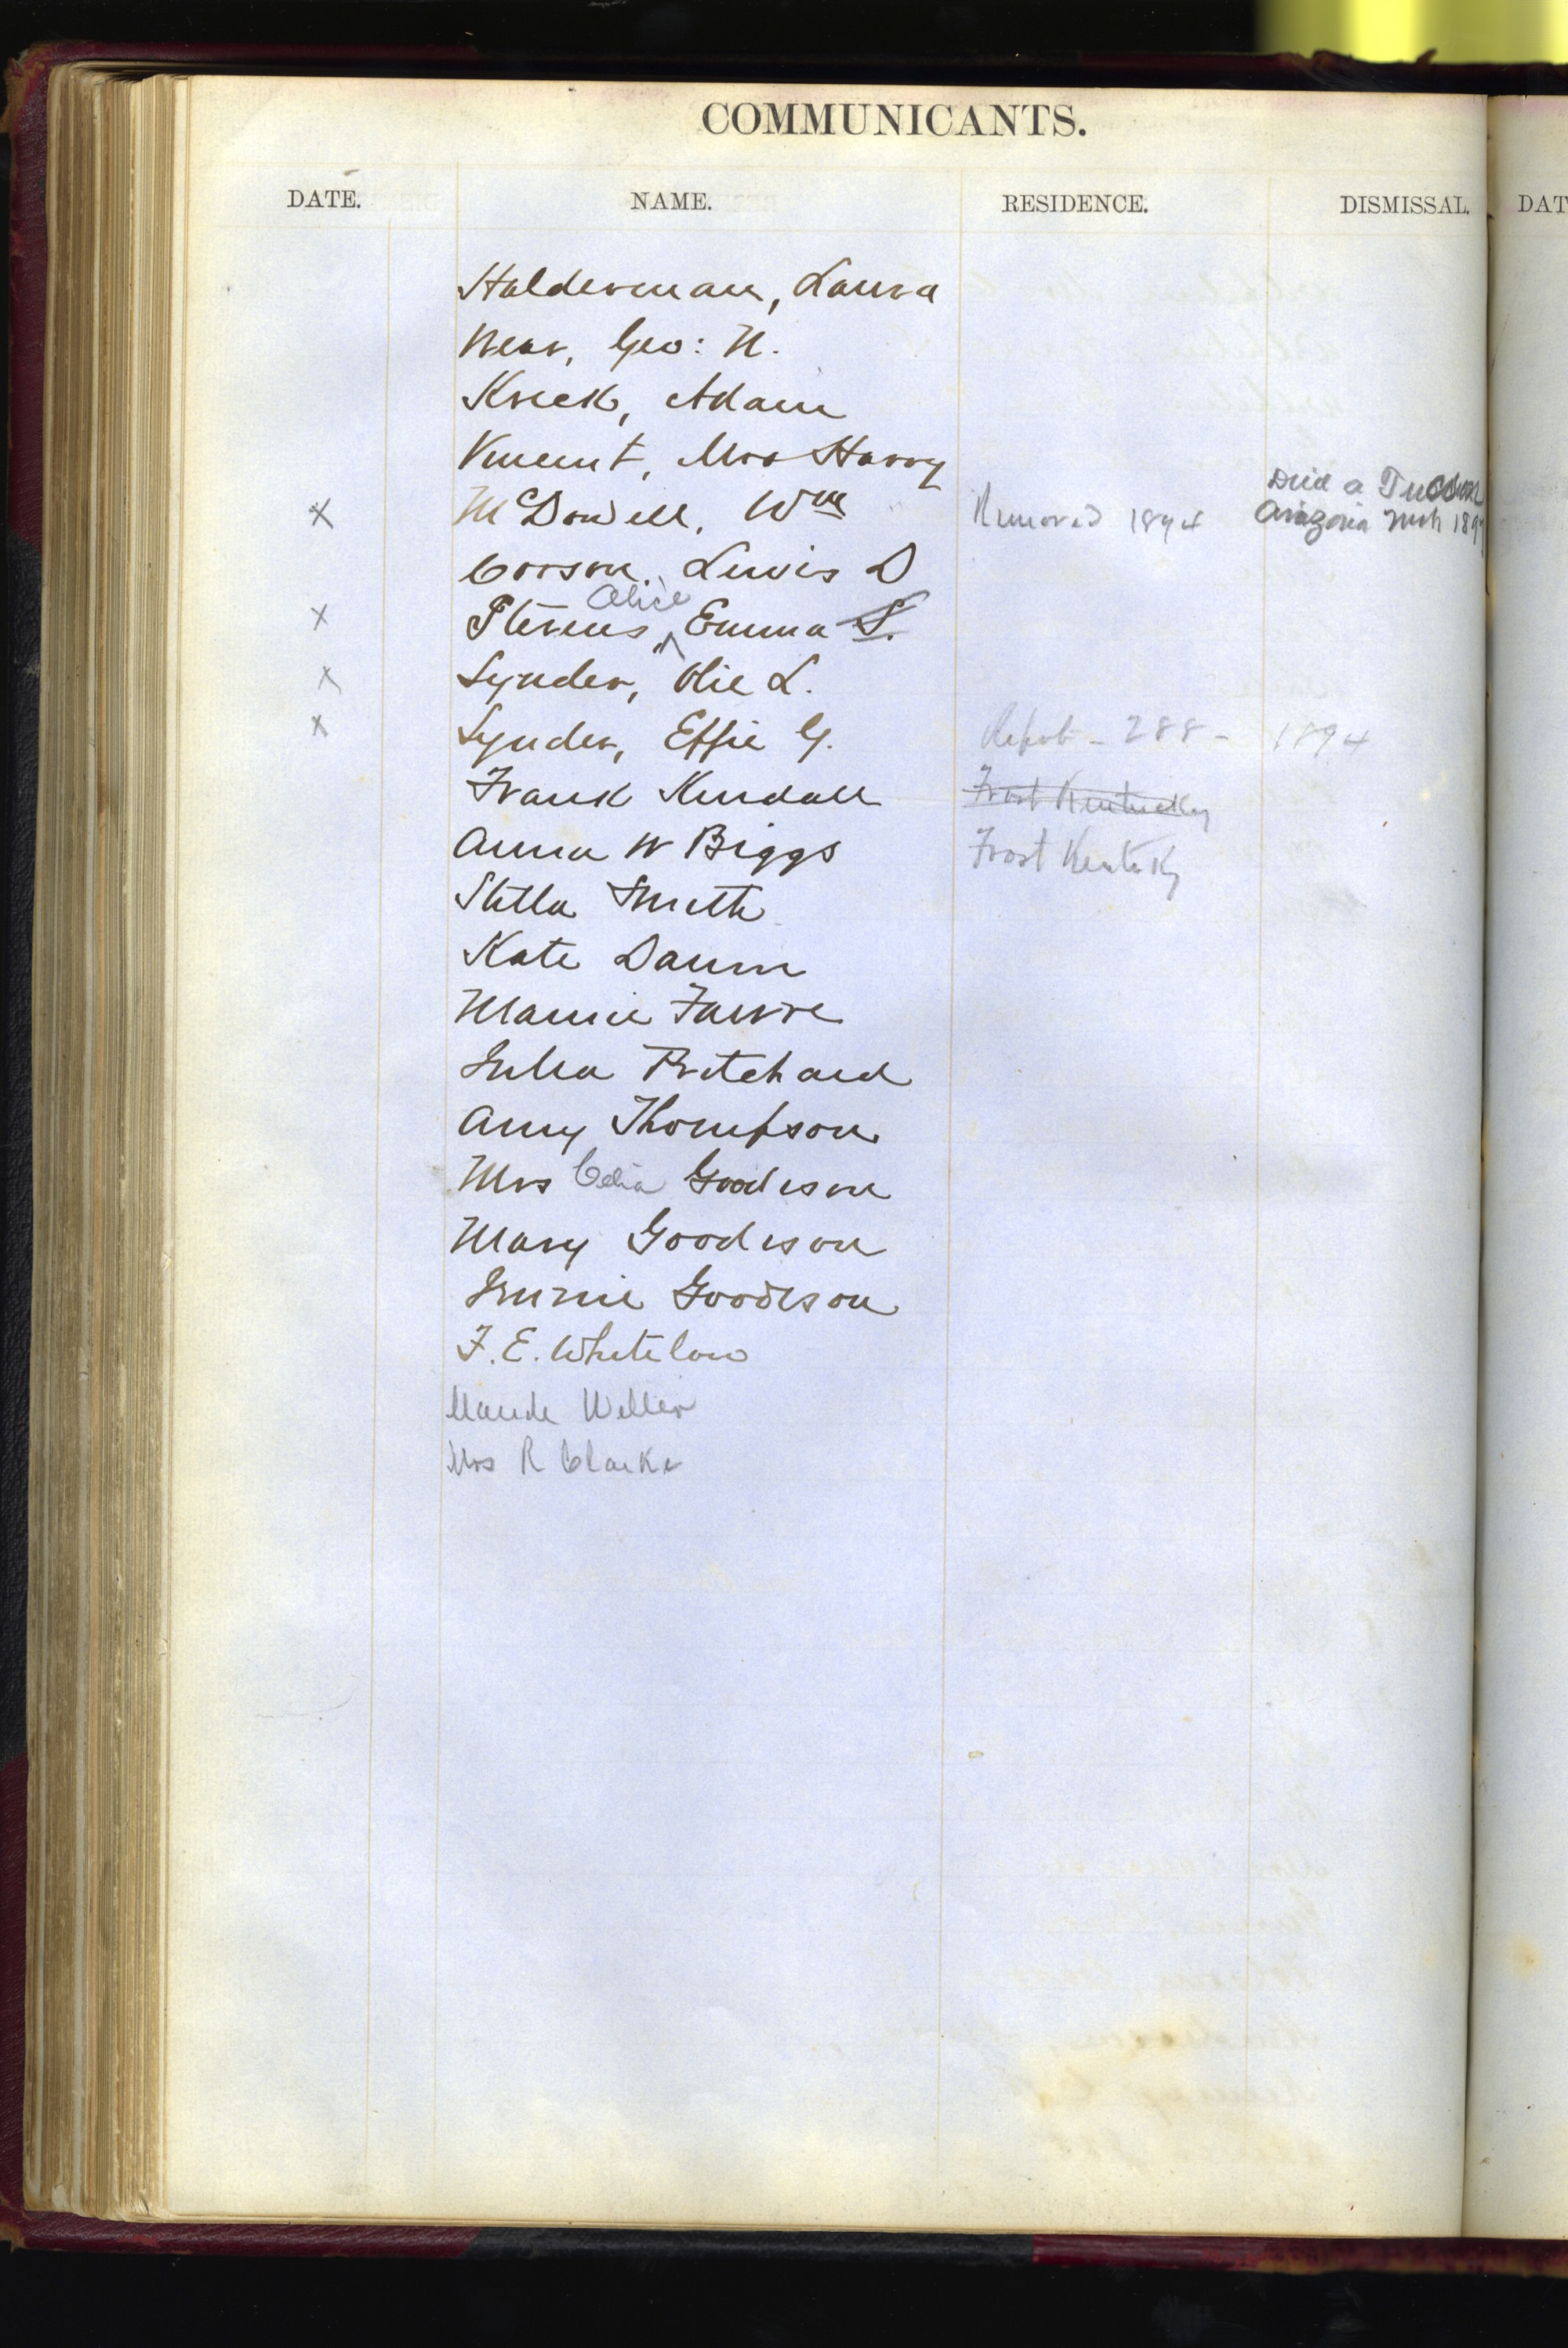 COMMUNICANTS.
DATE. NAME. RESIDENCE. DISMISSAL. DAT
Halderman, Laura
Near, Geo: N.
Krick, Adam
Vincent, Mrs Harry
X McDowell, Wm Removed 1894 Died a Tucson Arizona Mch 189
Corson, Lewis D
X Stevens, Alice Emma S.
X Synder, Olie L.
X Synder, Effie G. Report - 288 - 1894
Frank Kendall Frost Kentucky
Anna W Biggs Frost Kentuky
Stella Smith
Kate Daum
Mamie Faivre
Julia Pritchard
Amy Thompson
Mrs Celia Goodison
Mary Goodison
Goodison
F. E. Whitelaw
Maude Weller
Mrs R Clarke